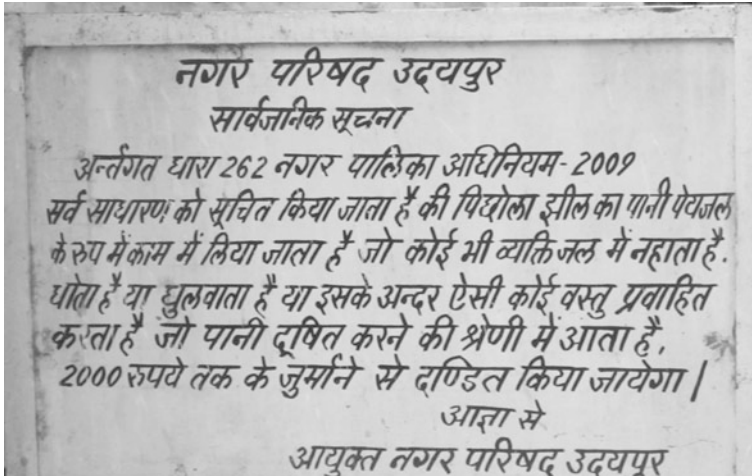 नगर परिषद उदयपुर
सार्वजनिक सूचना
अर्न्तगत धारा 262 नगर पालिका अधिनियम - 2009
सर्व साधारण को सूचित किया जाता है की पिछोला झील का पानी पेयजल
के रुप में काम में लिया जाता है जो कोई भी व्यक्ति जल में नहाता है.
धोता है या धुलवाता है या इसके अन्दर ऐसी कोई वस्तु प्रवाहित
करता है जो पानी दूषित करने की श्रेणी में आता है,
2000 रुपये तक के जुर्माने से दण्डित किया जायेगा |
आज्ञा से
आयुक्त नगर परिषद उदयपुर